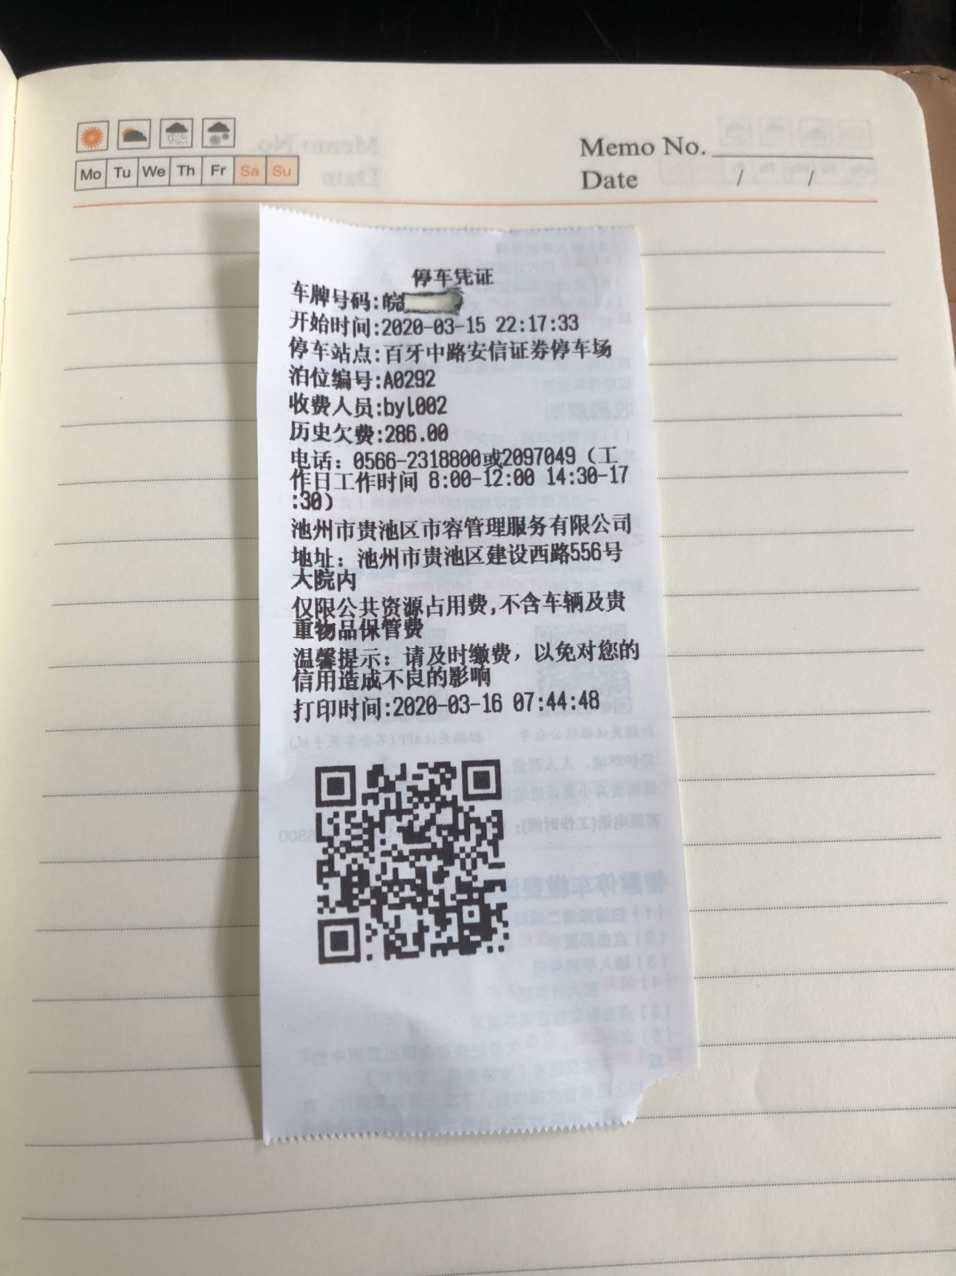 Memo No.
Mo Tu We Th Fr Sa Su
Date / /
停车凭证
车牌号码:皖
开始时间:2020-03-15 22:17:33
停车站点:百牙中路安信证券停车场
泊位编号:A0292
收费人员:byl002
历史欠费:286.00
电话：0566-2318800或2097049（工
作日工作时间 8:00-12:00 14:30-17
:30）
池州市贵池区市容管理服务有限公司
地址：池州市贵池区建设西路556号
大院内
仅限公共资源占用费,不含车辆及贵
重物品保管费
温馨提示：请及时缴费，以免对您的
信用造成不良的影响
打印时间:2020-03-16 07:44:48